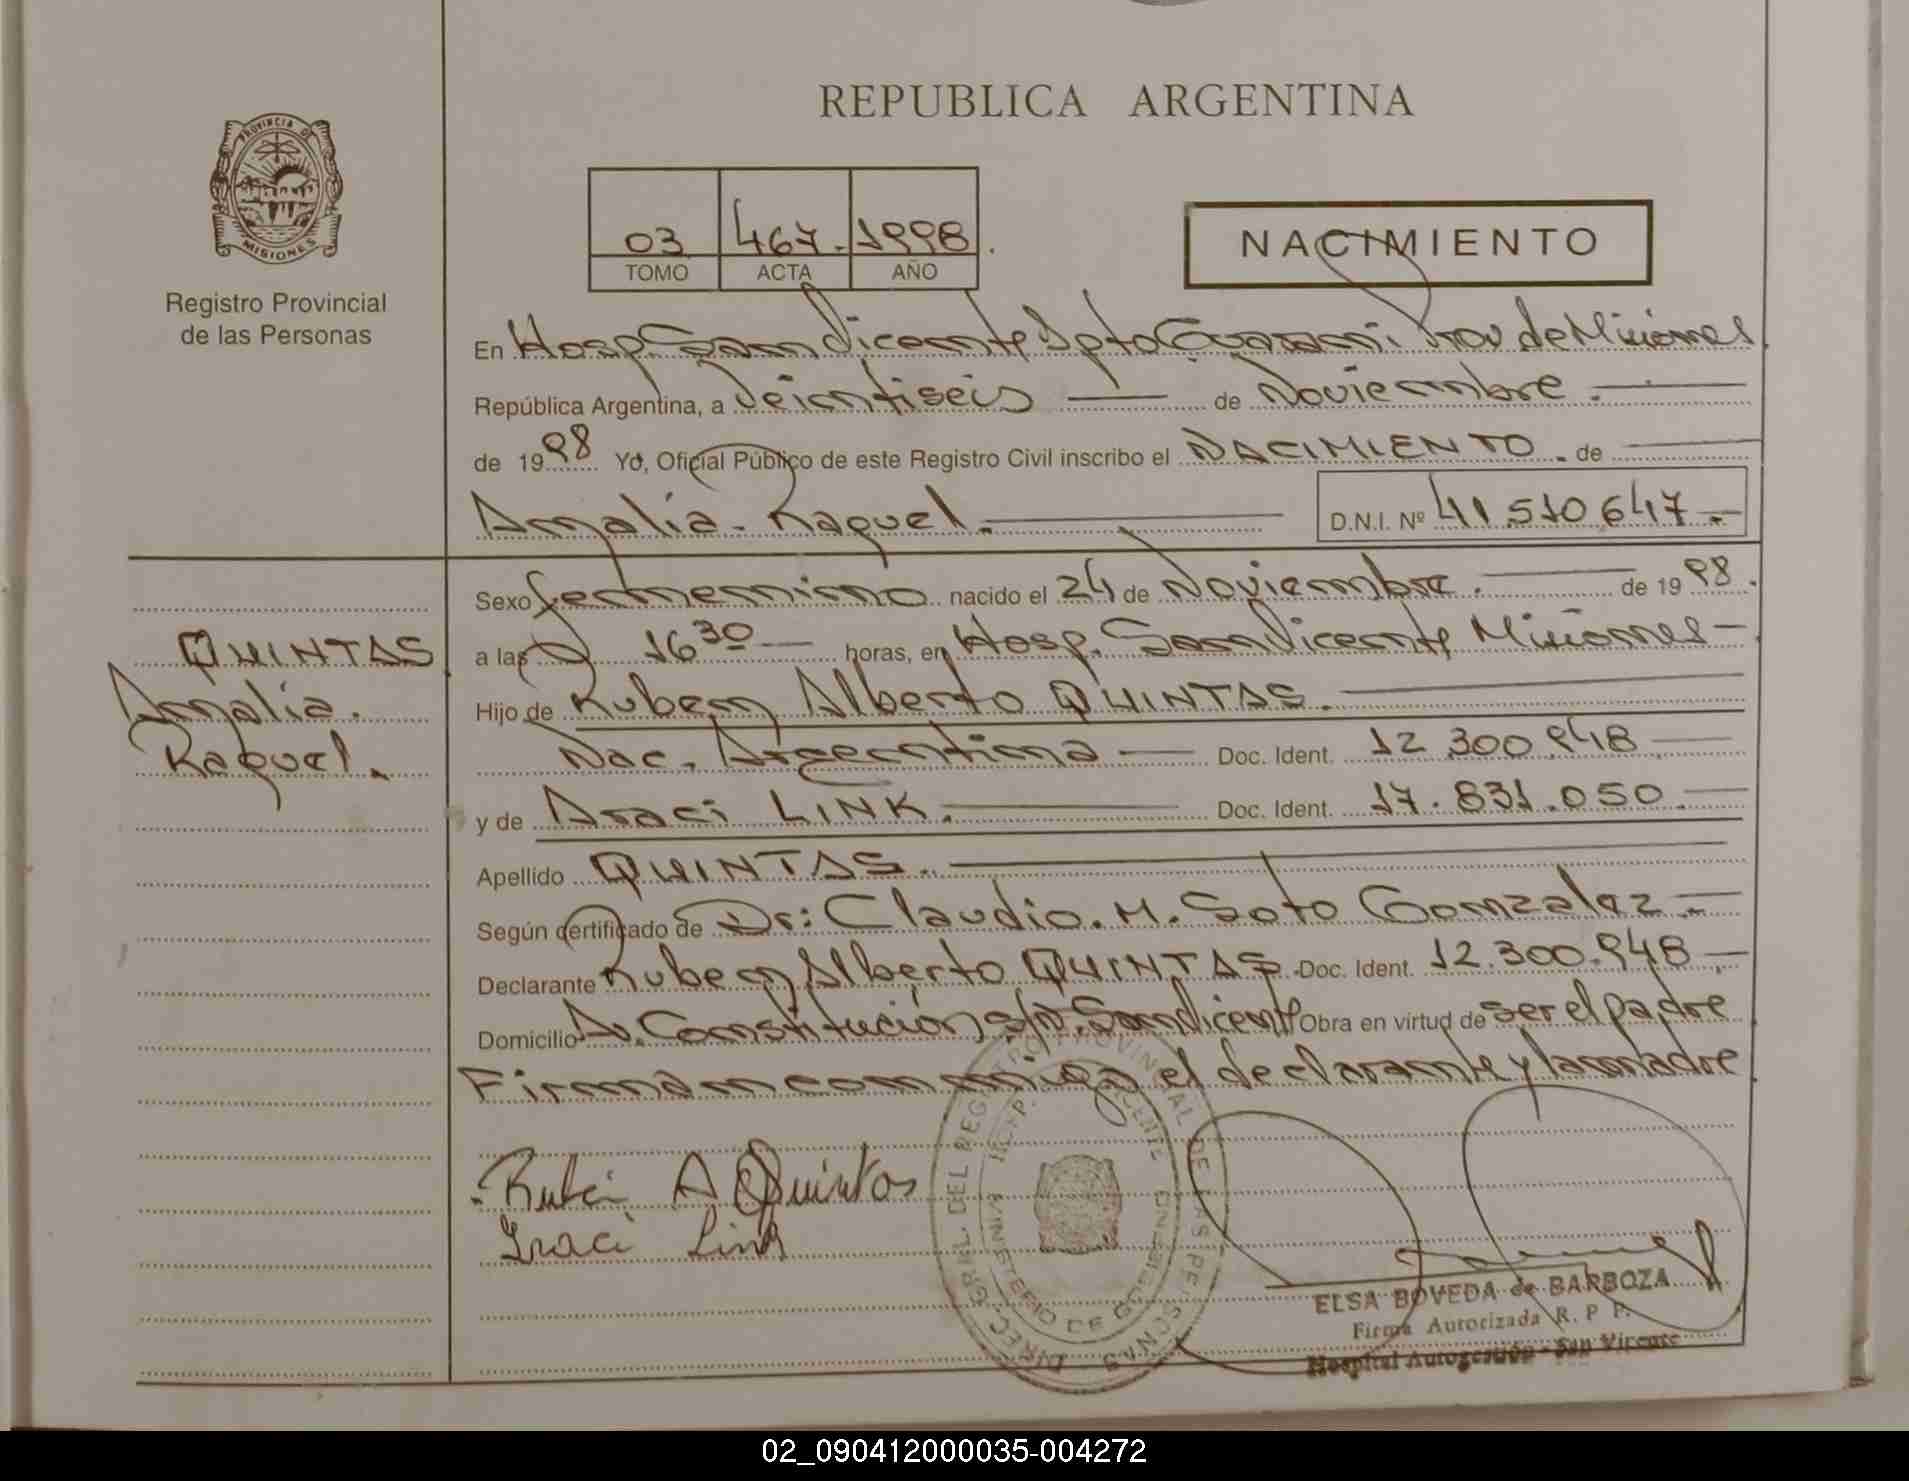 REPUBLICA ARGENTINA
PROVINCIA DE
MISIONES
Registro Provincial
de las Personas
03 467. 1998.
TOMO ACTA AÑO
NACIMIENTO
En Hosp. San Vicente Dpto Guarani. Prov de Misiones
República Argentina, a veintiseis de Noviembre.
de 1998 Yo, Oficial Público de este Registro Civil inscribo el NACIMIENTO. de
Amalia. Raquel. D.N.I. Nº 41 510 647.
QUINTAS
Amalia.
Raquel.
Sexo femenino nacido el 24 de Noviembre. de 1998.
a las 16 30 horas, en Hosp. San Vicente Misiones
Hijo de Ruben Alberto QUINTAS.
Nac. Argentina Doc. Ident. 12 300 948
y de Araci LINK. Doc. Ident. 17. 831. 050.
Apellido QUINTAS.
Según certificado de Dr: Claudio. M. Soto Gonzalez.
Declarante Ruben Alberto QUINTAS Doc. Ident. 12.300.948
Domicilio Av. Constitución s/n. San Vicente Obra en virtud de ser el padre
Firman conmigo el declarante y la madre
Ruben A Quintas
Iraci Link
DIREC. GRAL. DEL REGISTRO PROVINCIAL DE LAS PERSONAS
MINISTERIO DE GOBIERNO
ELSA BOVEDA de BARBOZA
Firma Autorizada R. P P.
Hospital Autogestión - San Vicente
02_090412000035-004272